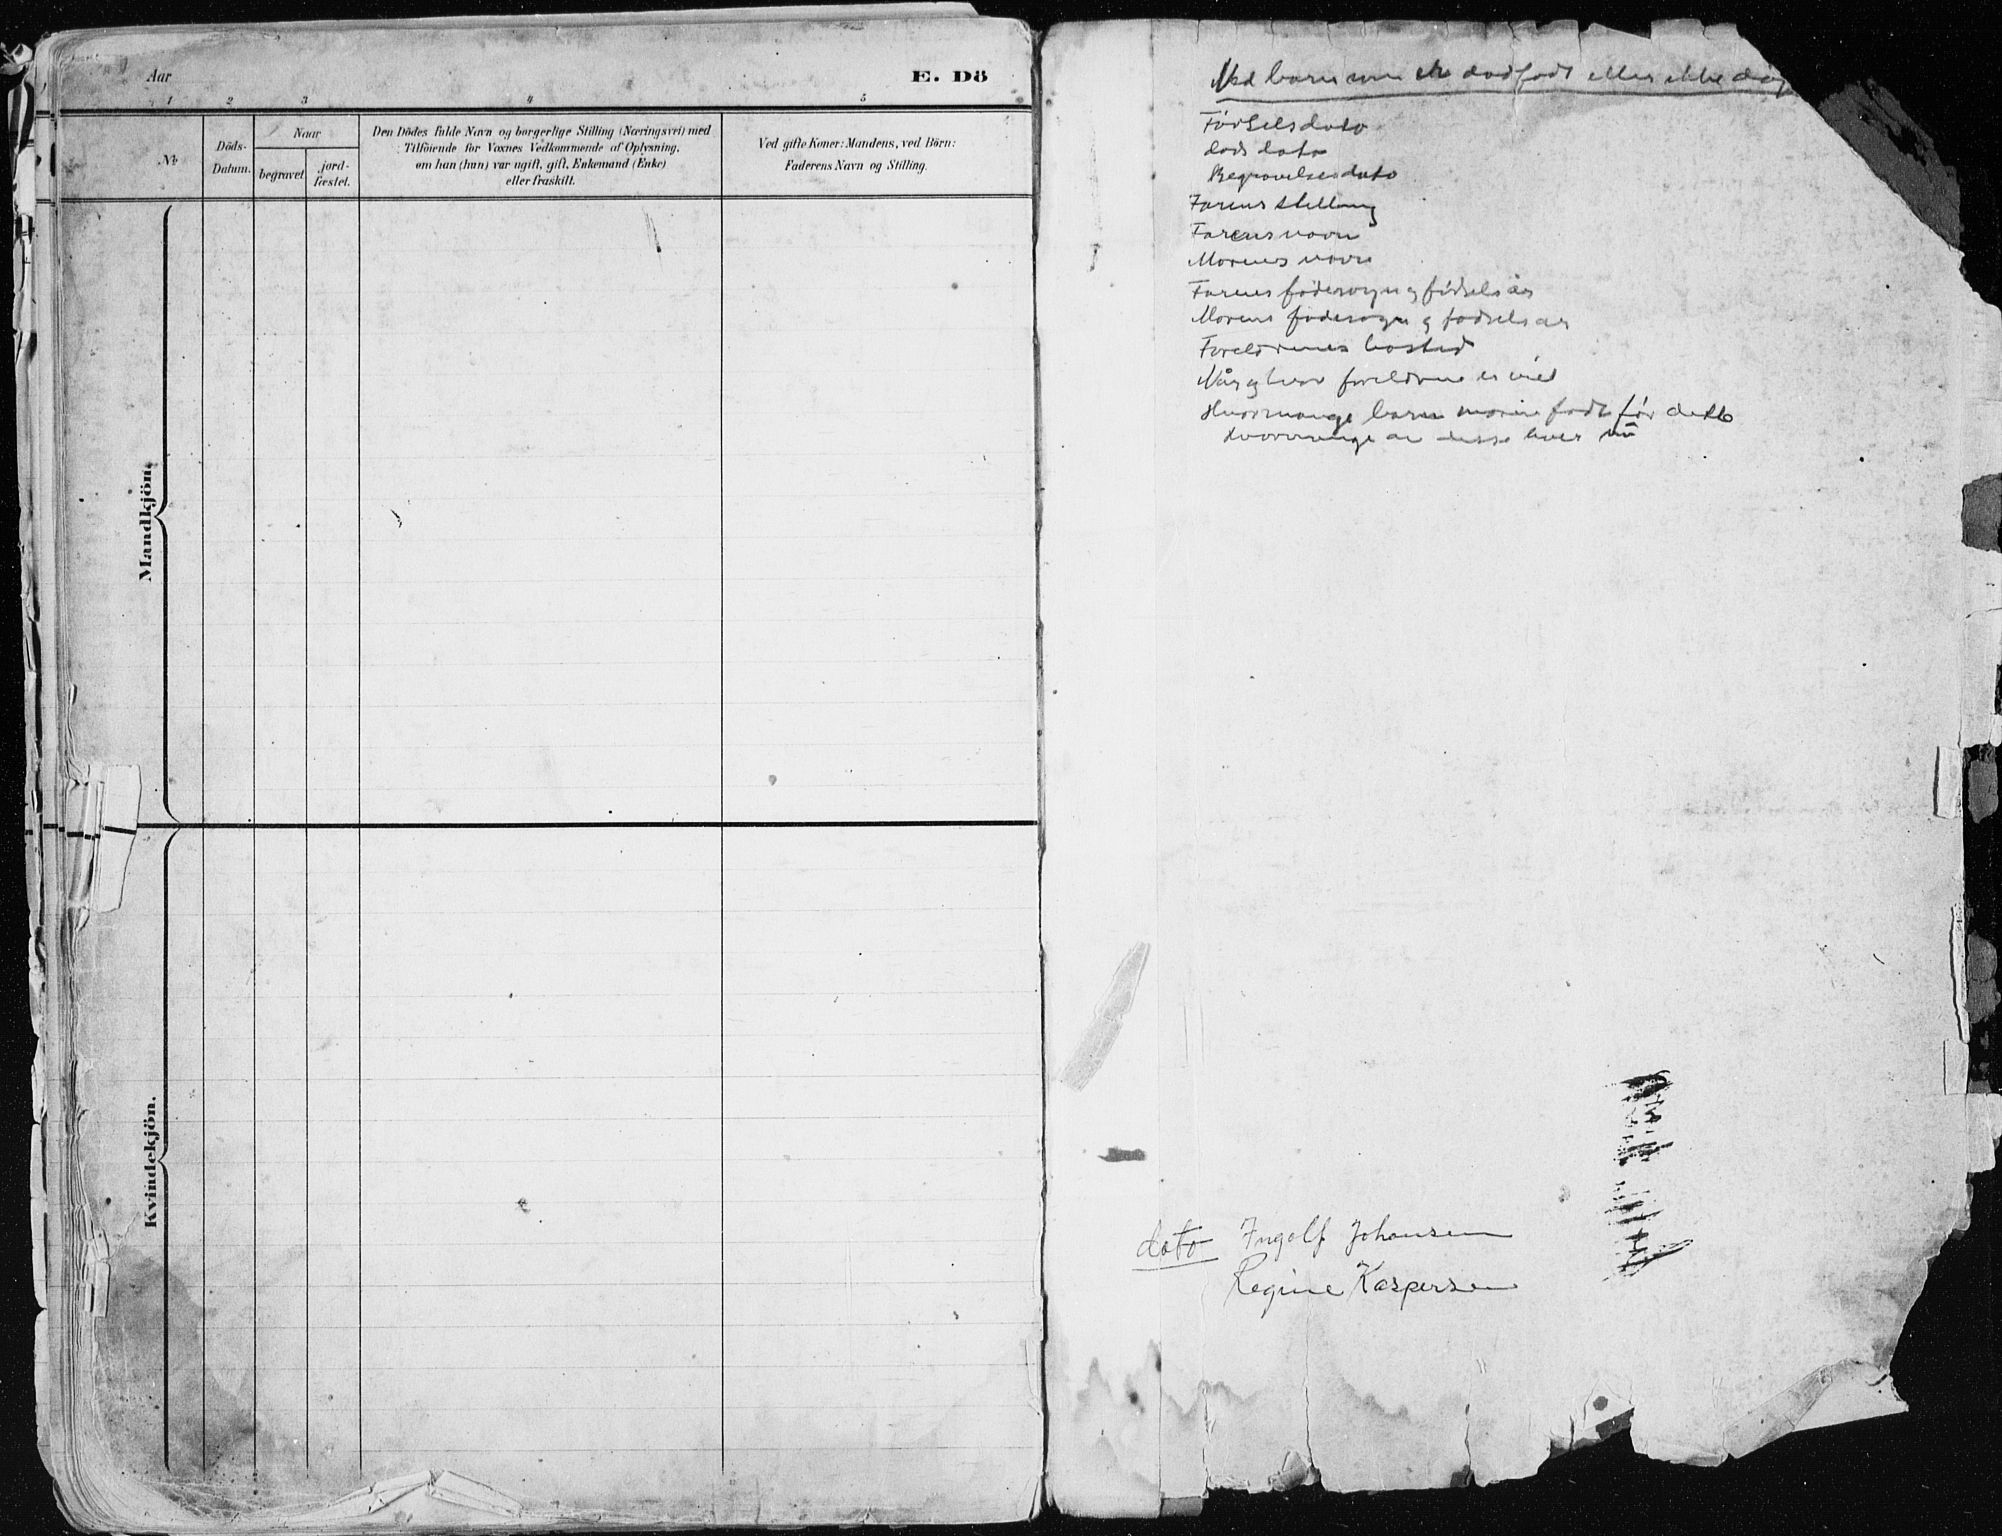 Aar
E. Dö
1 2 3 4 5
No
Döds-
Datum.
Naar
begravet
jord-
fæstet.
Den Dödes fulde Navn og borgerlige Stilling (Næringsvei) med
Tilföiende for Voxnes Vedkommende af Oplysning,
om han (hun) var ugift, gift, Enkemand (Enke)
eller fraskilt.
Ved gifte Koner: Mandens, ved Börn:
Faderens Navn og Stilling.
Mandkjön.
Kvindekjön.
Ved barn som er dødfødt eller ikke
Fødselsdato
døds dato
Begravelsesdato
Farens stilling
Farens navn
Morens navn
Farens fødesogn og fødselsår
Morens fødesogn og fødselsår
Foreldrenes bosted
Når og hvor foreldrene er viet
Hvormange barn moren født før dette
Hvormange av disse lever nå
dato Ingolf Johansen
Regine Kaspersen